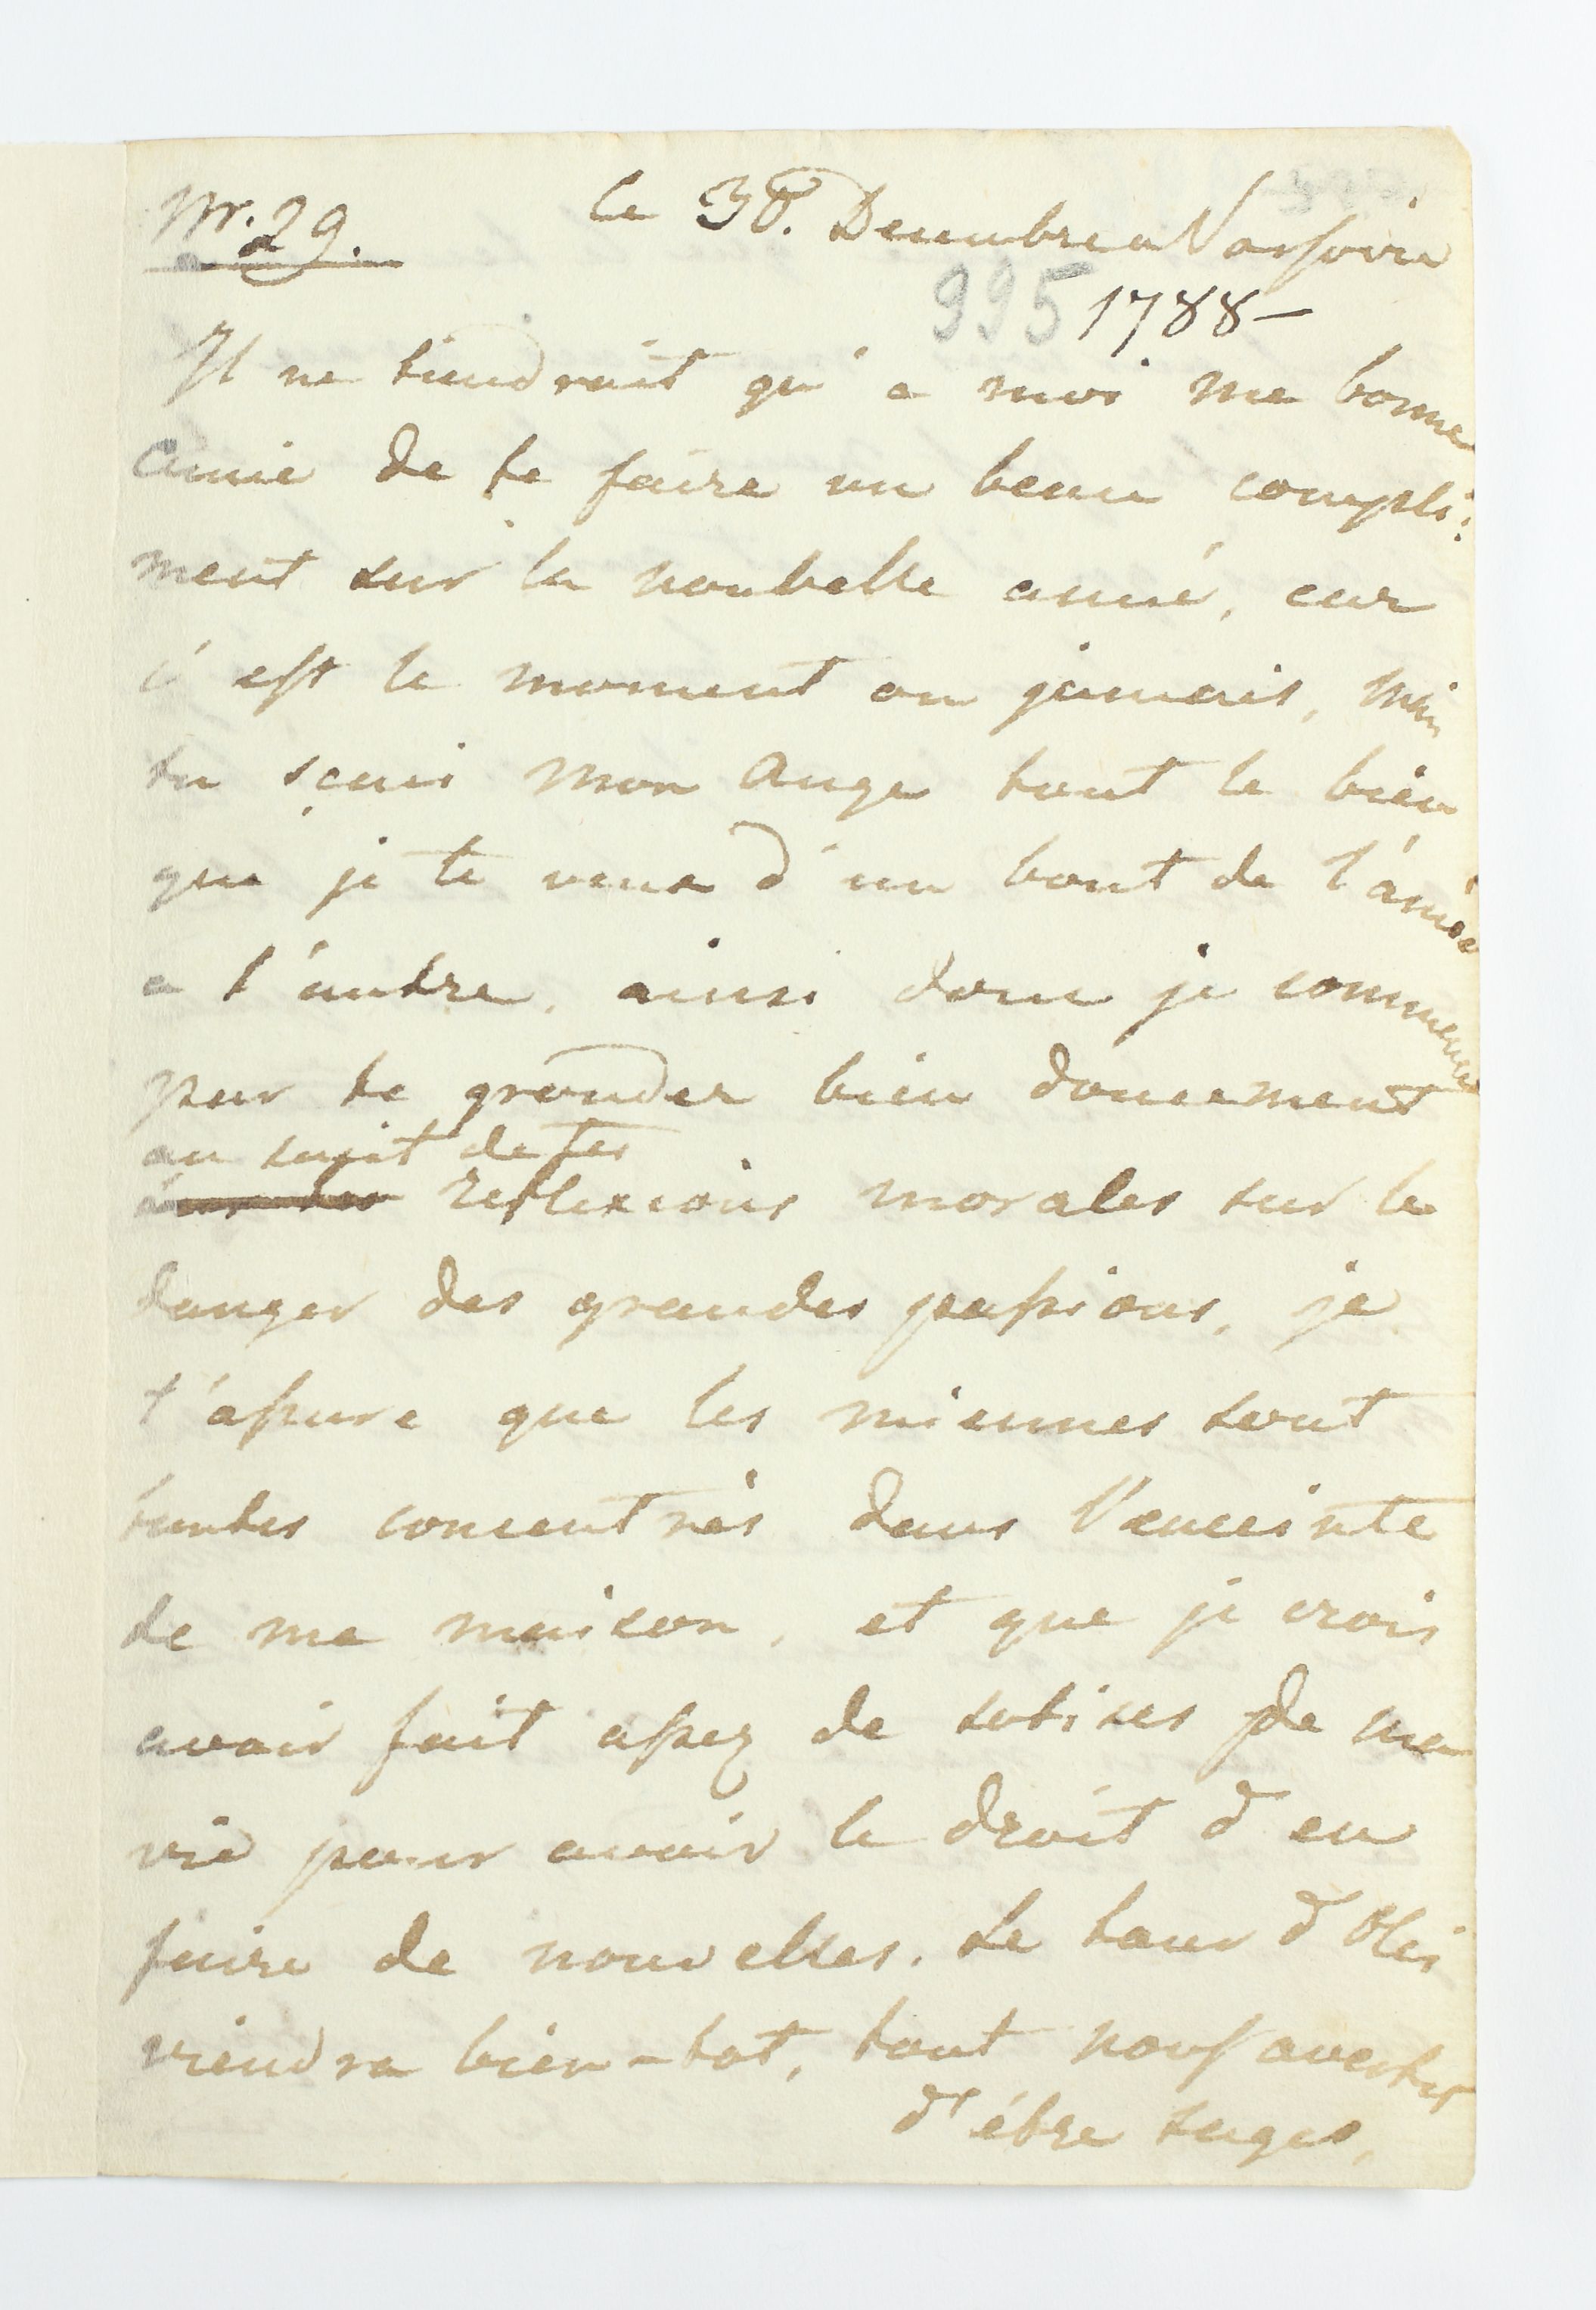 Nr. 29.
le 30. Decembre a Varsovie
995 1788 -
Il ne tiendrait qu'a moi ma bonne
amie de te faire un beau compli:
ment sur la nouvelle anné, car
c'est le moment ou jamais, mais
tu sçais mon Ange tout le bien
que je te veux d'un bout de l'année
a l'autre, ainsi donc je commence
par te gronder bien doucement
au sujet de tes
reflexions morales sur le
danger des grandes passions, je
t'assure que les miennes sont
toutes concentrés dans l'enceinte
de ma maison, et que je crois
avoir fait assez de sotises de ma
vie pour avoir le droit d'en
faire de nouvelles. Le tour d'Olei
viendra bien-tot, tout nous avertit
d'être sages,